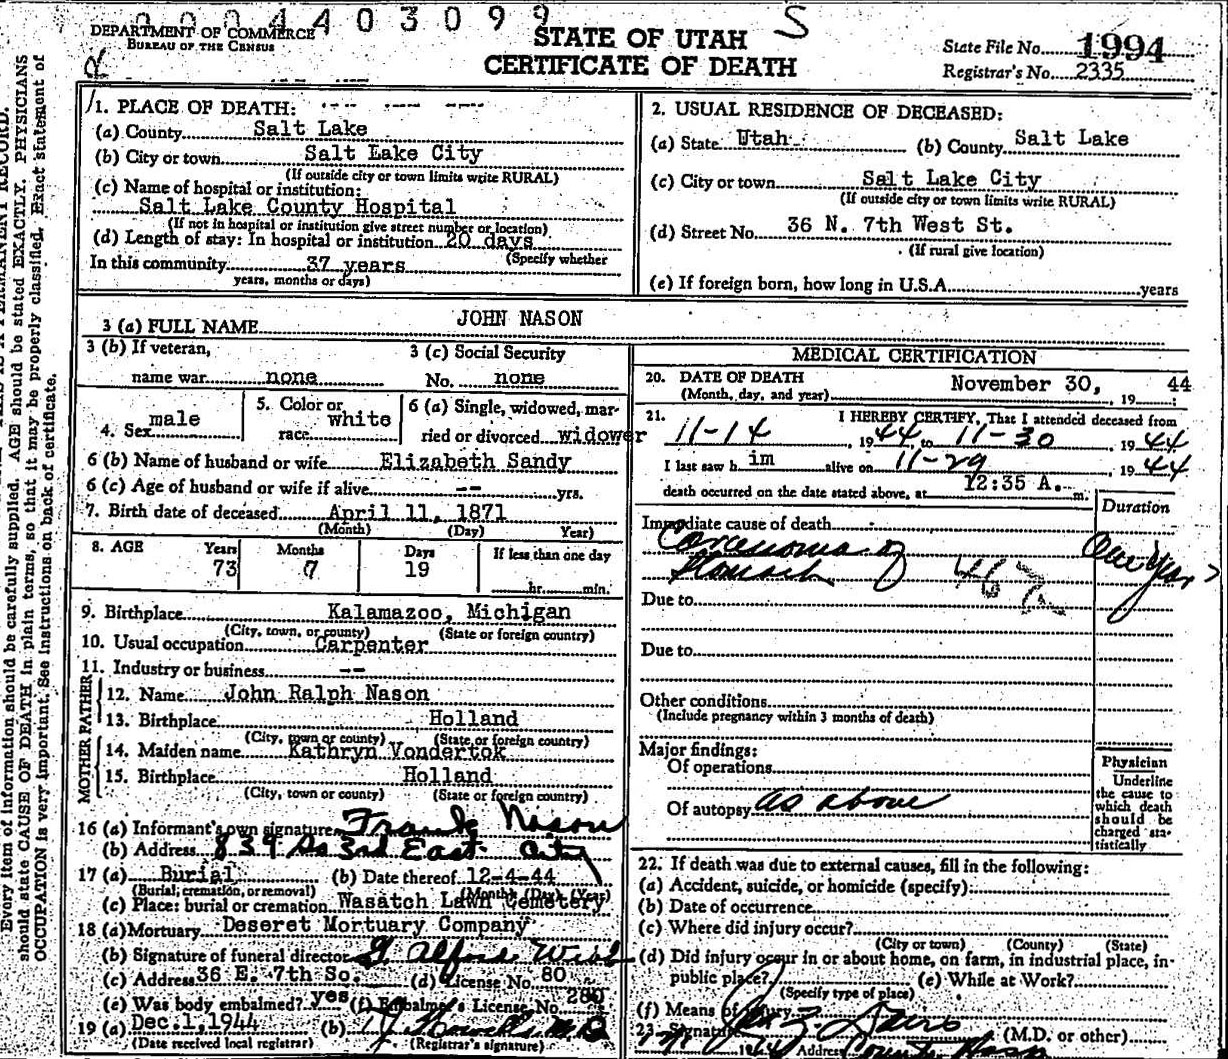 0004403099
S
DEPARTMENT OF COMMERCE
BUREAU OF THE CENSUS
STATE OF UTAH
CERTIFICATE OF DEATH
State File No. 1994
Registrar's No. 2335
1. PLACE OF DEATH:
(a) County Salt Lake
(b) City or town Salt Lake City
(If outside city or town limits write RURAL)
(c) Name of hospital or institution:
Salt Lake County Hospital
(If not in hospital or institution give street number or location)
(d) Length of stay: In hospital or institution 20 days
(Specify whether
In this community 37 years
years, months or days)
2. USUAL RESIDENCE OF DECEASED:
(a) State Utah (b) County Salt Lake
(c) City or town Salt Lake City
(If outside city or town limits write RURAL)
(d) Street No. 36 N. 7th West St.
(If rural give location)
(e) If foreign born, how long in U.S.A. years
3 (a) FULL NAME JOHN NASON
3 (b) If veteran,
name war none
3 (c) Social Security
No. none
4. Sex male
5. Color or
race white
6 (a) Single, widowed, mar-
ried or divorced widower
6 (b) Name of husband or wife Elizabeth Sandy
6 (c) Age of husband or wife if alive -- yrs.
7. Birth date of deceased April 11, 1871
(Month) (Day) Year)
8. AGE Years Months Days If less than one day
73 7 19 hr. min.
9. Birthplace Kalamazoo, Michigan
(City, town, or county) (State or foreign country)
10. Usual occupation Carpenter
11. Industry or business --
FATHER
12. Name John Ralph Nason
13. Birthplace Holland
(City, town or county) (State or foreign country)
MOTHER
14. Maiden name Kathryn Vondertok
15. Birthplace Holland
(City, town or county) (State or foreign country)
16 (a) Informant's own signature Frank Nason
(b) Address 839 So 3rd East City
17 (a) Burial (b) Date thereof 12-4-44
(Burial, cremation, or removal) (Month) (Day) (Year)
(c) Place: burial or cremation Wasatch Lawn Cemetery
18 (a) Mortuary Deseret Mortuary Company
(b) Signature of funeral director Alford Webb
(c) Address 36 E. 7th So. (d) License No. 80
(e) Was body embalmed? yes (f) Embalmer's License No. 280
19 (a) Dec.1,1944 (b) M.D
(Date received local registrar) (Registrar's signature)
MEDICAL CERTIFICATION
20. DATE OF DEATH November 30, 19 44
(Month, day, and year)
21. I HEREBY CERTIFY, That I attended deceased from
11-14, 1944 to 11-30, 1944
I last saw him alive on 11-29, 1944
death occurred on the date stated above, at 12:35 A. m.
Duration
Immediate cause of death
Carcinoma of
Stomach
One Year
46
Due to
Due to
Other conditions
(Include pregnancy within 3 months of death)
Major findings:
Of operations
Of autopsy as above
Physician
Underline
the cause to
which death
should be
charged sta-
tistically
22. If death was due to external causes, fill in the following:
(a) Accident, suicide, or homicide (specify):
(b) Date of occurrence
(c) Where did injury occur?
(City or town) (County) (State)
(d) Did injury occur in or about home, on farm, in industrial place, in-
public place? (e) While at Work?
(Specify type of place)
(f) Means of injury
23. Signature Davis (M.D. or other)
Address County Hosp
PERMANENT RECORD.
Every item of information should be carefully supplied. AGE should be stated EXACTLY. PHYSICIANS
should state CAUSE OF DEATH in plain terms, so that it may be properly classified. Exact statement of
OCCUPATION is very important. See instructions on back of certificate.